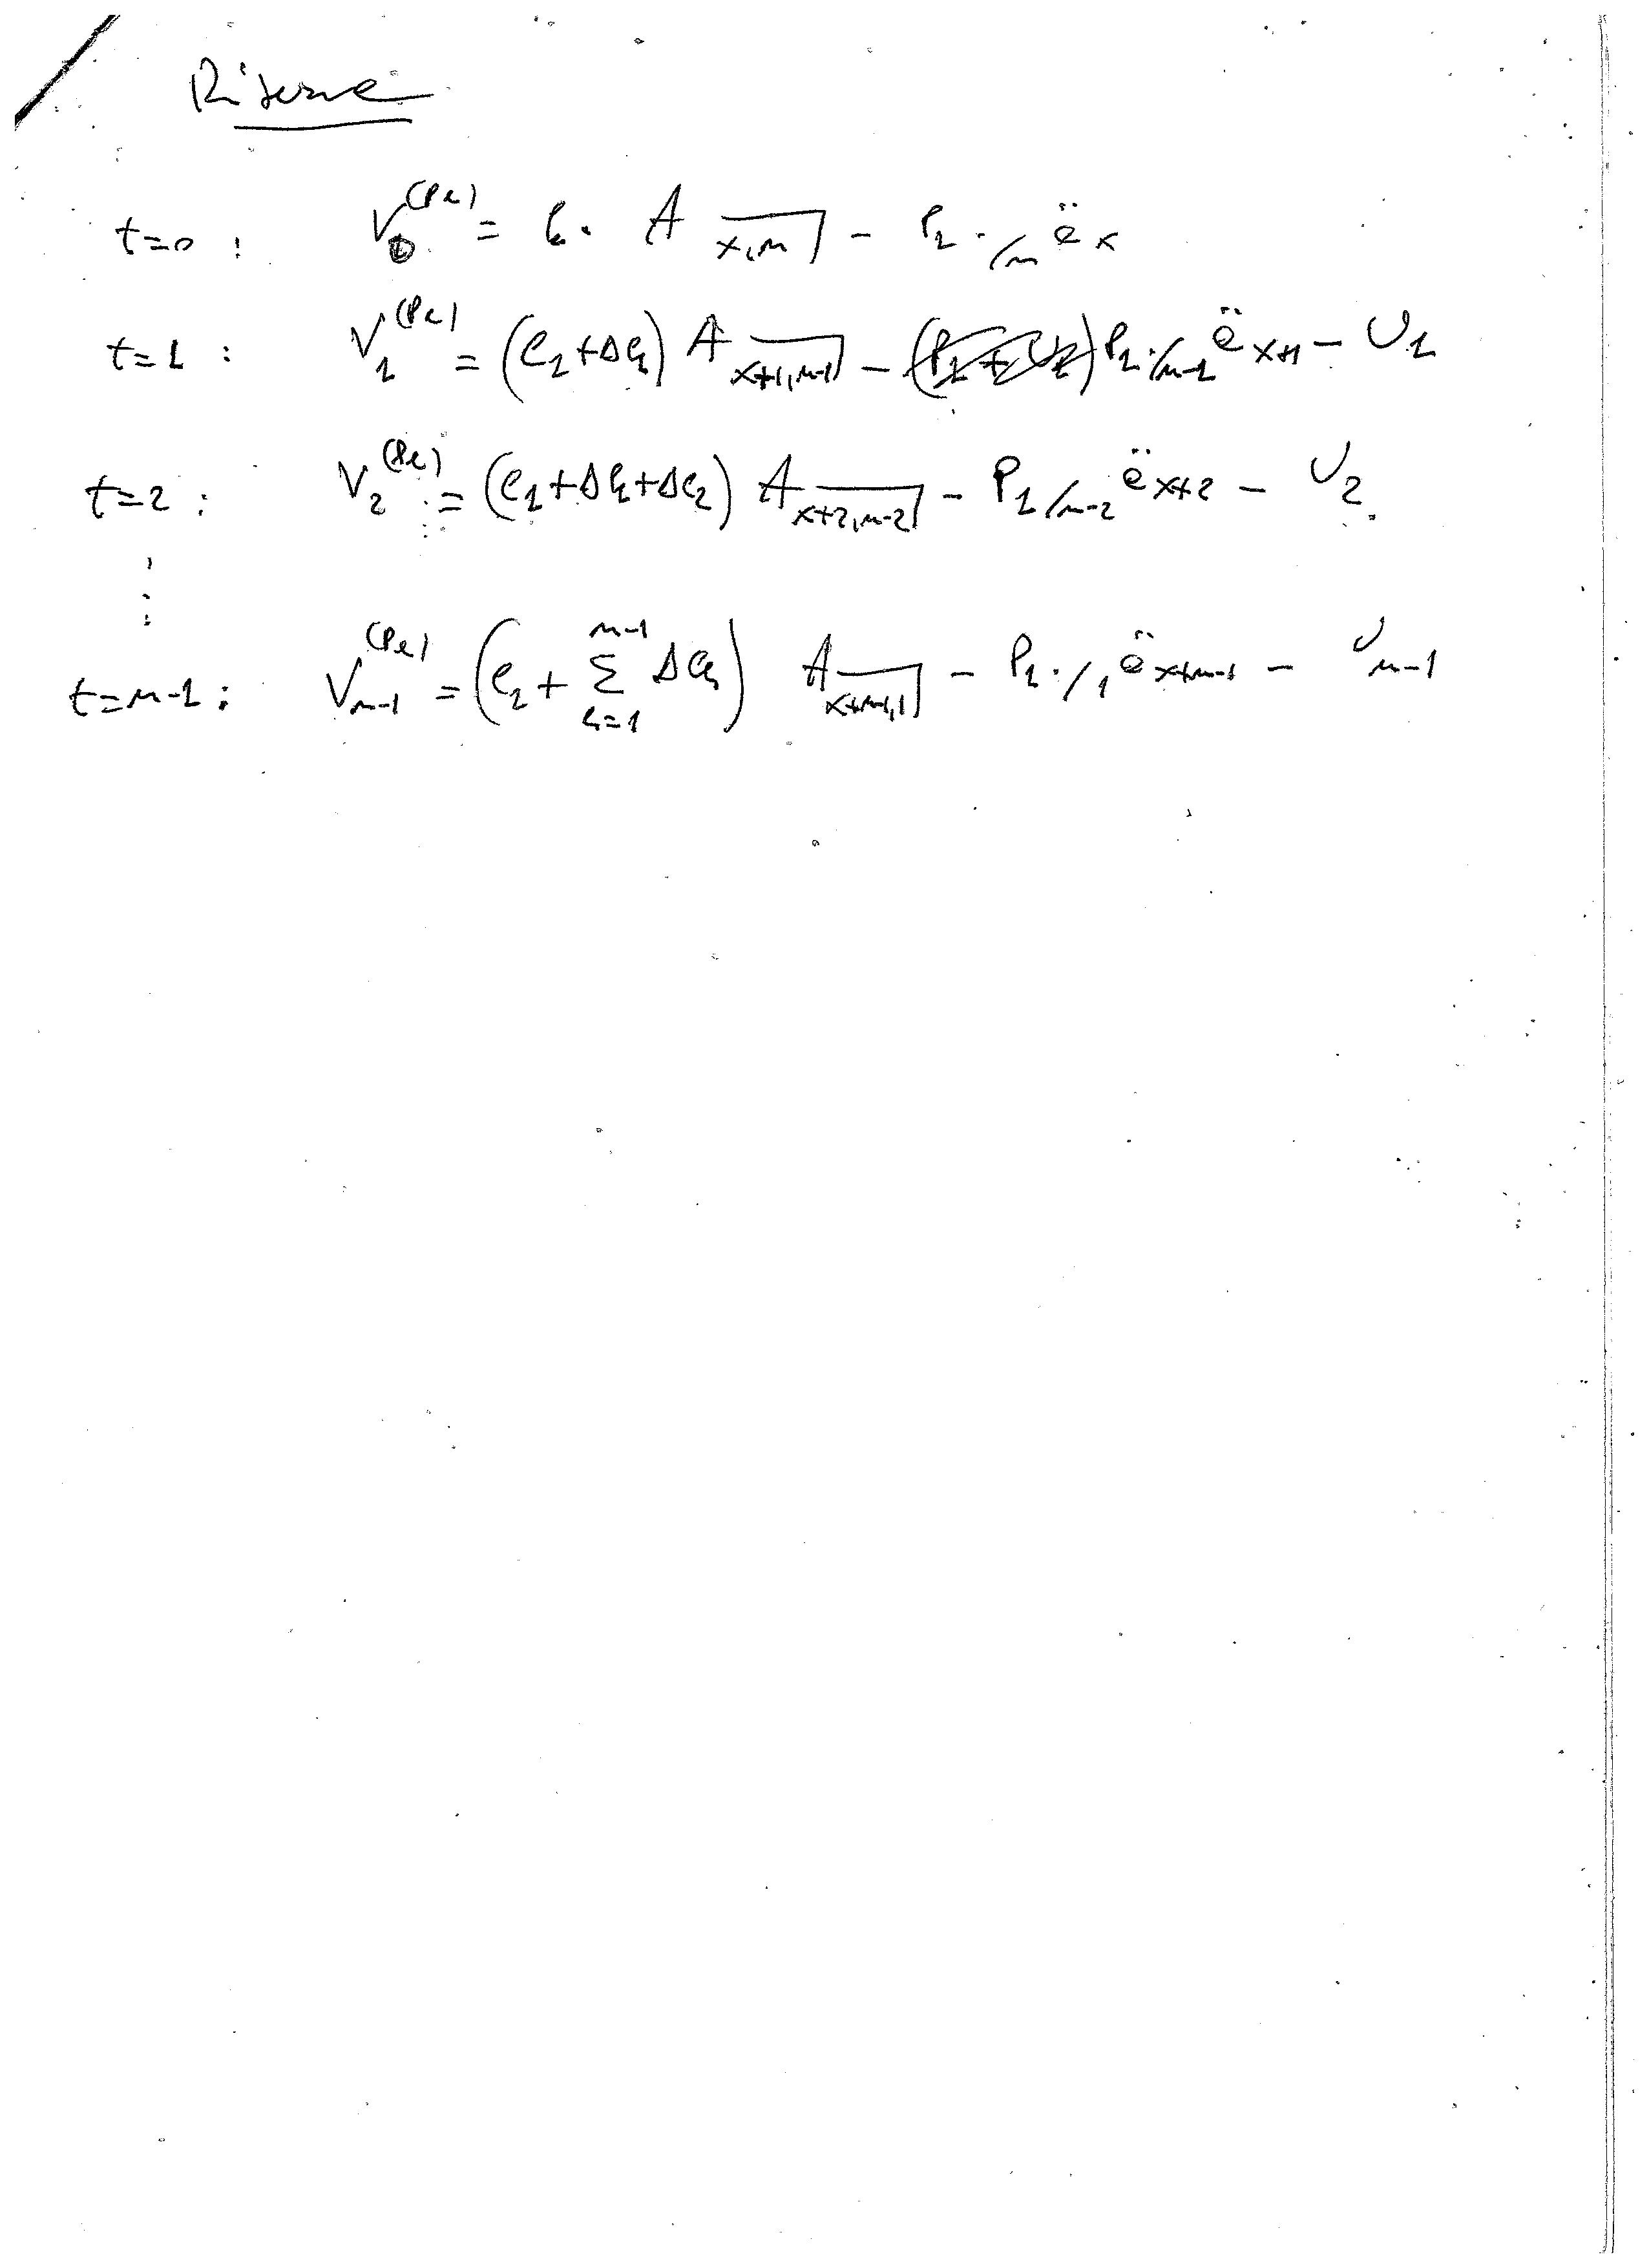 Riserve
t=0 : V₀^(Pu) = C₁ · A_{x,n⌉} − P₁ · /n ä x
t=1 : V₁^(Pu) = (C₁+ΔC₁) A_{x+1,n-1⌉} − P₁·/n-1 ä x+1 − U₁
t=2 : V₂^(Pu) = (C₁+ΔC₁+ΔC₂) A_{x+2,n-2⌉} − P₁ /n-2 ä x+2 − U₂
⋮
t=n-1 : V_{n-1}^(Pu) = (C₁ + Σ_{h=1}^{n-1} ΔC_h) A_{x+n-1,1⌉} − P₁·/1 ä x+n-1 − U_{n-1}